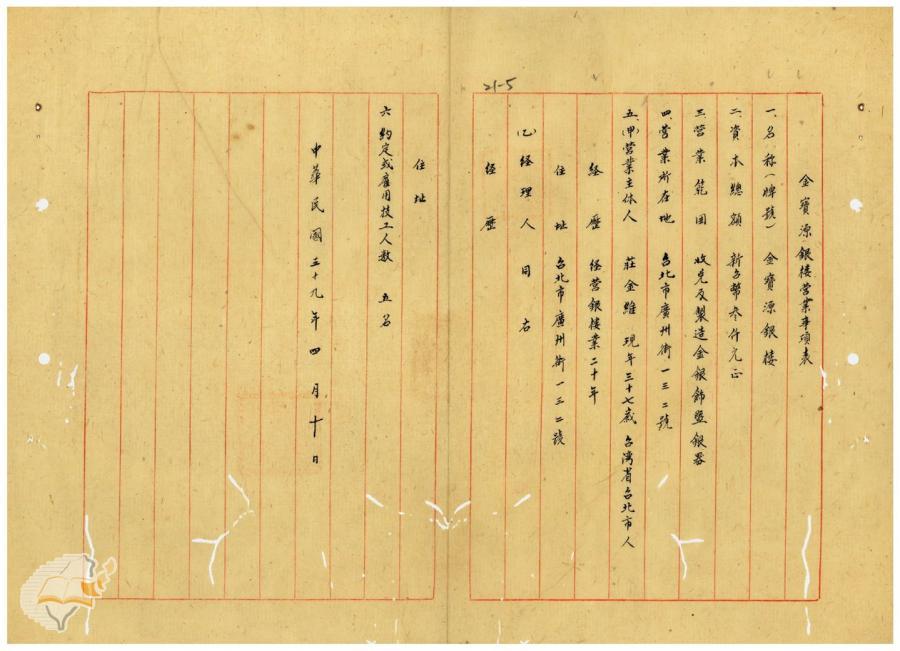 21-5
金寶源銀楼营業事項表
一、名称(牌號) 金寶源銀楼
二、資本總額 新台幣叁仟元正
三、营業範囲 收兌及製造金銀飾暨銀器
四、营業所在地 台北市廣州街一三二號
五、(甲)营業主体人 莊金維 現年三十七歲 台湾省台北市人
经歷 经营銀楼業二十年
住址 台北市廣州街一三二號
(乙)经理人 同右
经歷
住址
六、約定或雇用技工人数 五名
中華民國三十九年四月十日